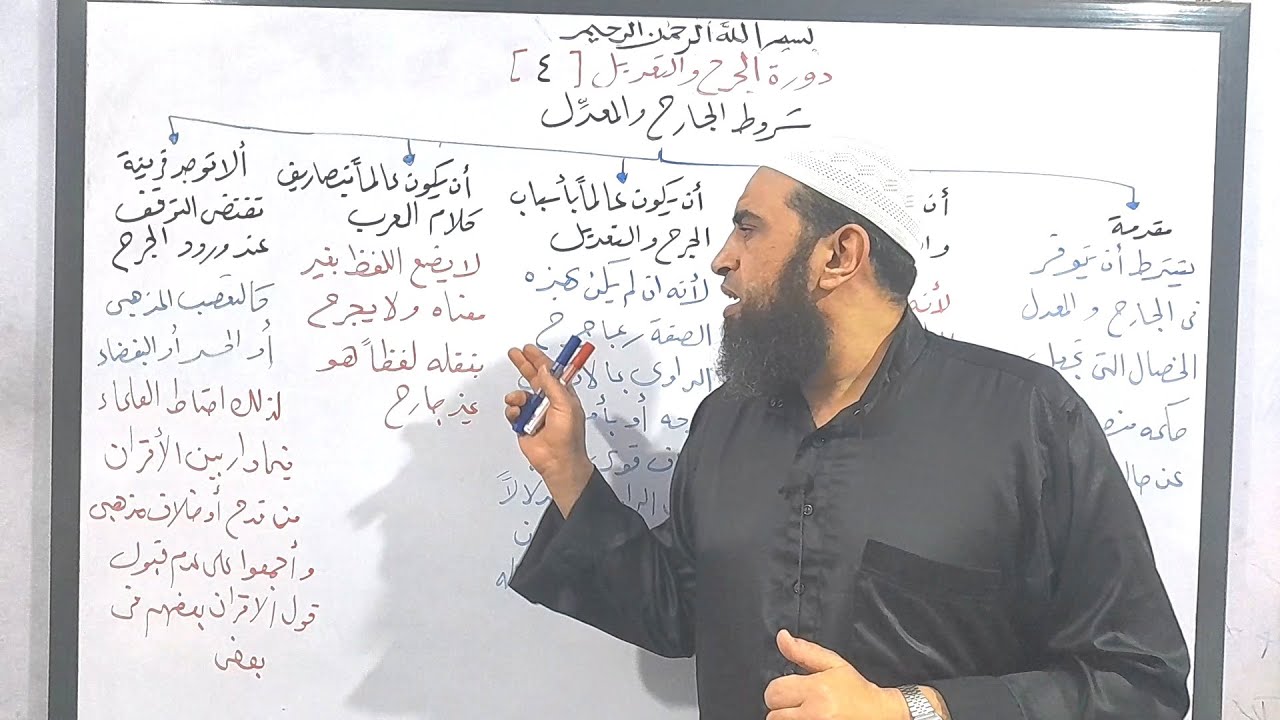 بسم الله الرحمن الرحيم
دورة الجرح والتعديل [٤]
شروط الجارح والمعدِّل
مقدمة
يشترط أن يتوفر
فى الجارح والمعدل
الخصال التى تجعل
حكمه
عن
أن
لأنه
أن يكون عالماً بأسباب
الجرح والتعديل
لأنه ان لم يكن بهذه
الصفة ربما جرح
الراوي
أو
أن يكون عالماً بتصاريف
كلام العرب
لا يضع اللفظ بغير
معناه ولا يجرح
بنقله لفظاً هو
غير جارح
ألا توجد قرينة
تقتضى التوقف
عند ورود الجرح
كالتعصب المذهبى
أو الحسد أو البغضاء
لذلك احتاط العلماء
فيما دار بين الأقران
من قدح أو خلاف مذهبى
وأجمعوا على عدم قبول
قول الاقران بعضهم فى
بعض